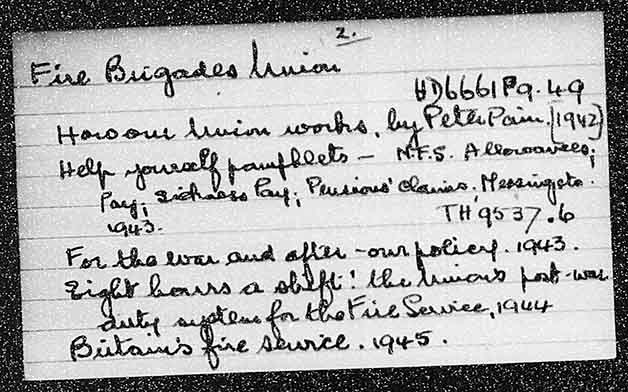 2.
Fire Brigades Union
HD6661 P9.49
How our Union works, by Peter Pain. [1942]
Help yourself pamphlets - N.F.S. Allowances;
Pay; Sickness Pay; Pensions' claims. Messing etc.
1943. TH 9537.6
For the war and after - our policy. 1943.
Eight hours a shift! the Union's post-war
duty system for the Fire Service, 1944
Britain's fire service. 1945.